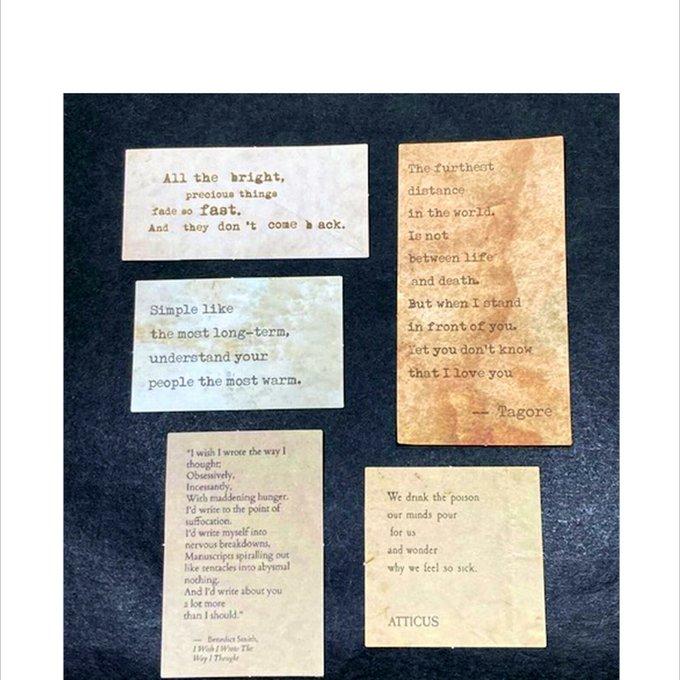 All the bright,
precious things
fade so fast.
And they don't come back.
The furthest
distance
in the world.
Is not
between life
and death.
But when I stand
in front of you.
Yet you don't know
that I love you
-- Tagore
Simple like
the most long-term,
understand your
people the most warm.
"I wish I wrote the way I
thought;
Obsessively,
Incessantly,
With maddening hunger.
I'd write to the point of
suffocation.
I'd write myself into
nervous breakdowns,
Manuscripts spiralling out
like tentacles into abysmal
nothing.
And I'd write about you
a lot more
than I should."
— Benedict Smith,
I Wish I Wrote The
Way I Thought
We drink the poison
our minds pour
for us
and wonder
why we feel so sick.
ATTICUS